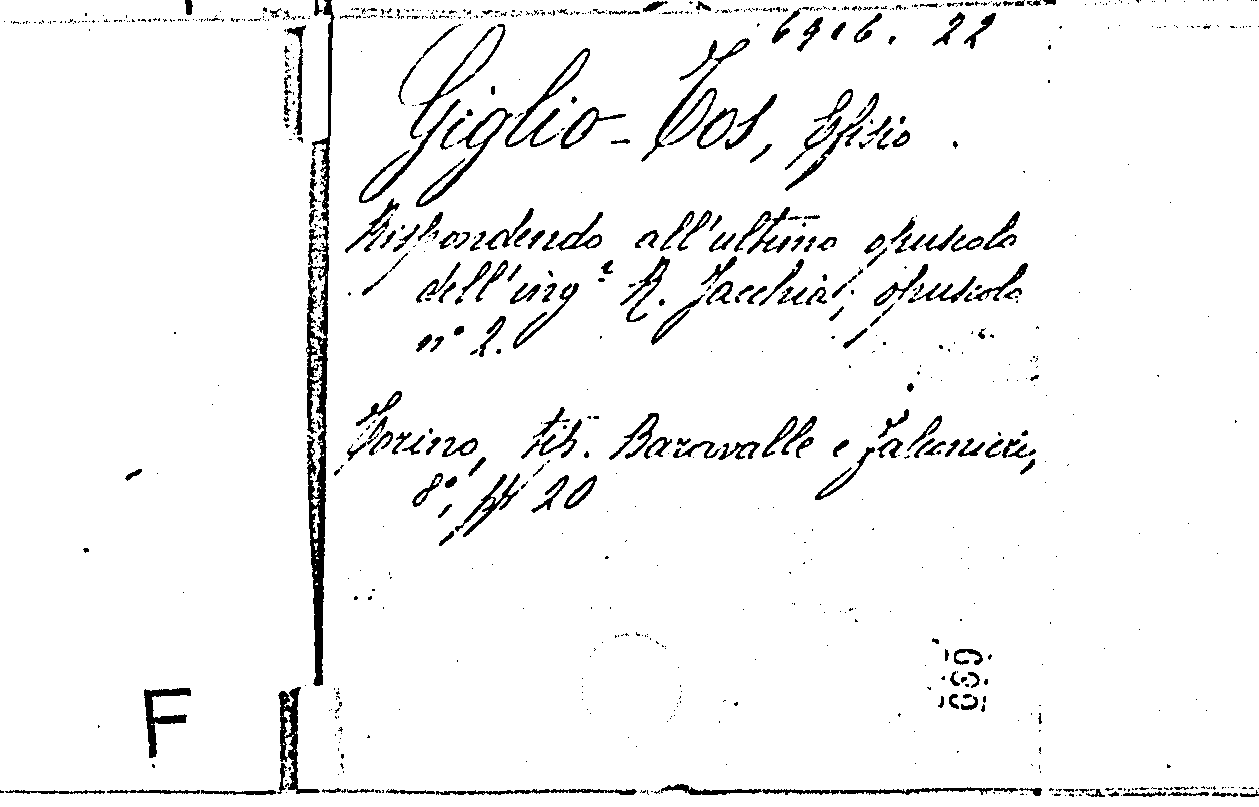 6906. 22
Giglio-Tos, Efisio.
Rispondendo all'ultimo opuscolo
dell'ing.e R. Jacchia, opuscolo
n° 2.
Torino, tip. Baravalle e Falconieri,
8°, pp 20
F